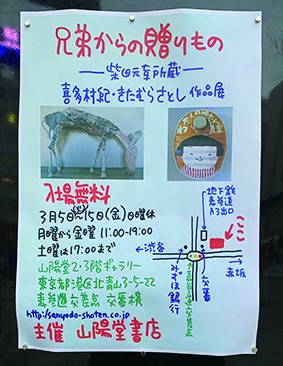 兄弟からの贈りもの
柴田元幸所蔵
喜多村紀・きたむらさとし 作品展
入場無料
3月5日(火)15日(金)日曜休
月曜から金曜 11:00-19:00
土曜は17:00まで
山陽堂2・3階ギャラリー
東京都港区北青山3-5-22
表参道交差点 交番横
http://sanyodo-shoten.co.jp
主催 山陽堂書店
地下鉄
表参道
A3出口
ここ
←渋谷
赤坂
みずほ銀行
表参道交差点
交番